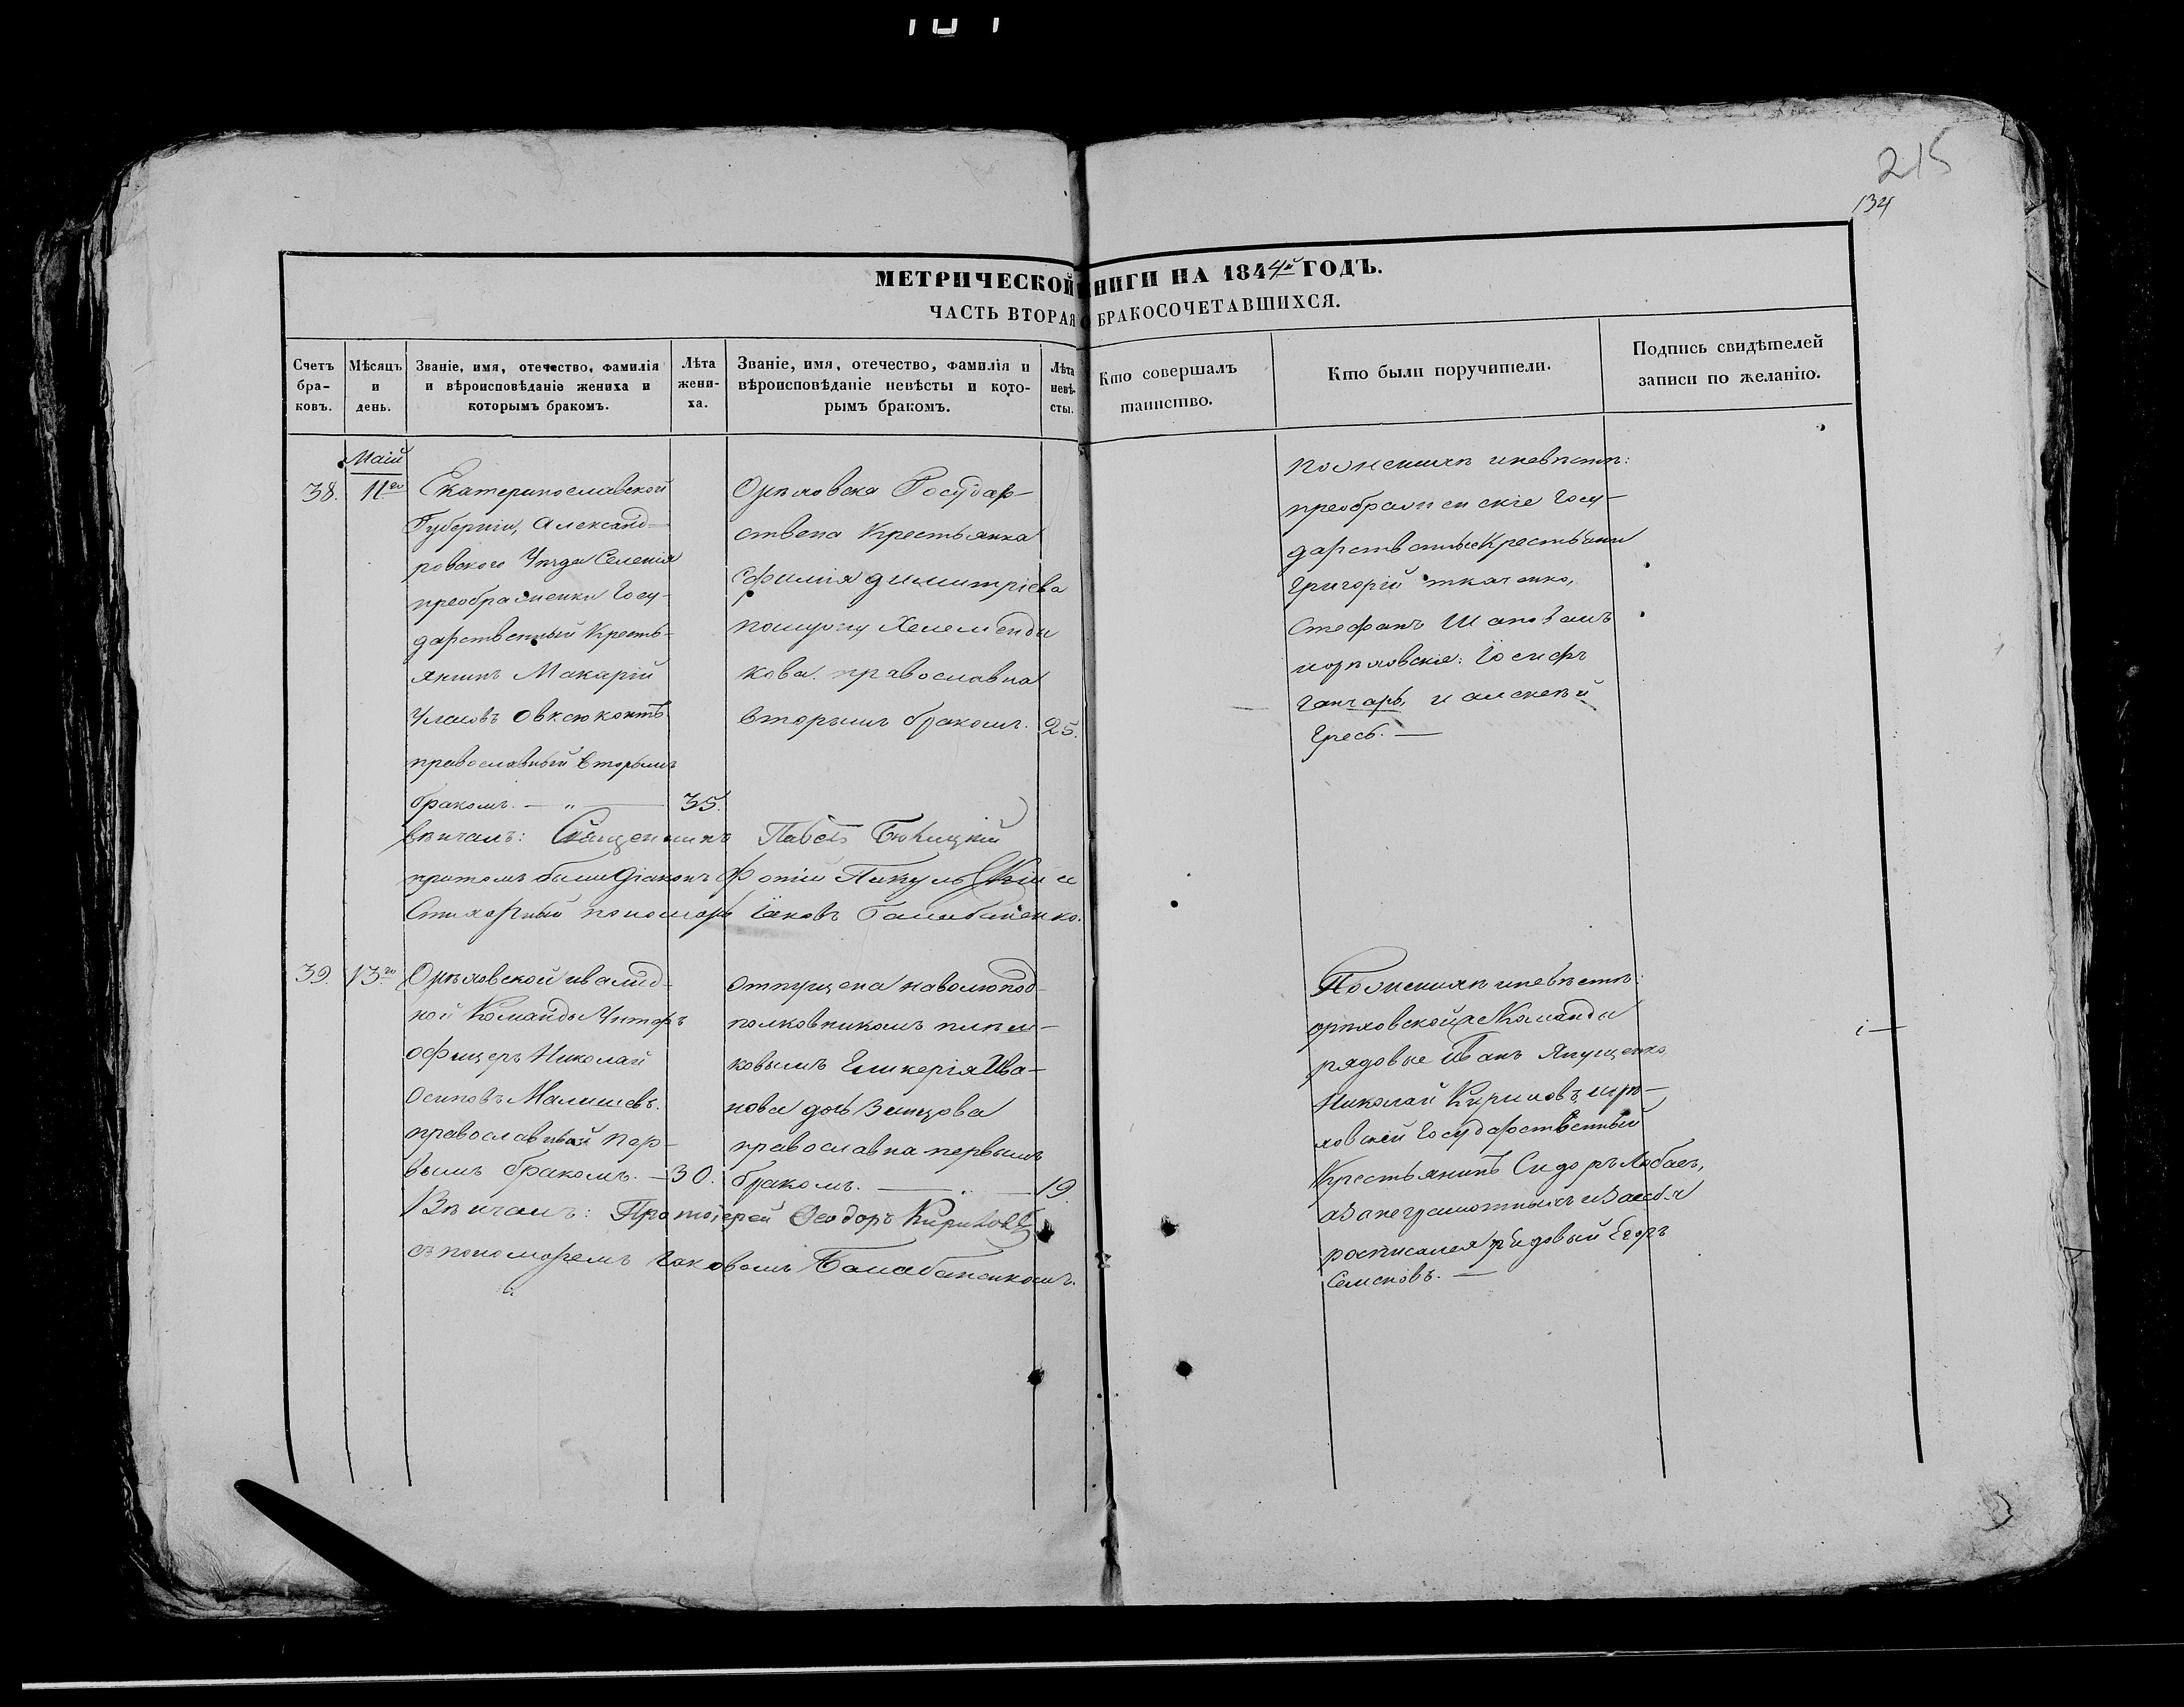 215
134
МЕТРИЧЕСКОЙ КНИГИ НА 1844й ГОДЪ.
ЧАСТЬ ВТОРАЯ О БРАКОСОЧЕТАВШИХСЯ.
Счетъ бра-
ковъ.
Мѣсяцъ
и
день.
Званіе, имя, отечество, фамилія
и вѣроисповѣданіе жениха и
которымъ бракомъ.
Лѣта
жени-
ха.
Званіе, имя, отечество, фамилія и
вѣроисповѣданіе невѣсты и кото-
рымъ бракомъ.
Лѣта
невѣ-
сты.
Кто совершалъ
таинство.
Кто были поручители.
Подпись свидѣтелей
записи по желанію.
Маій
38.
11го
Екатеринославской
Губерніи, Александ-
ровского Уѣзда Селенія
преображенки Госу-
дарственный Кресть-
янинъ Макарій
Овксюконтъ
православный вторымъ
бракомъ. — „ —
35.
Орѣховска Государ-
ствена Крестьянка
Димитріева
помужу
кова. православна
вторымъ бракомъ.
25.
Пожениху иневѣстѣ:
преображенскіе Госу-
дарственые Крестьяни
Григорій ткаченко,
Стефанъ Шаповалъ
иорѣховскіе: Іосифъ
ганчарь, и алексѣй
Гресь. —
вѣнчалъ: Священникъ Павелъ
притомъ были Діаконъ Фотій и
Стихарный пономарь Іаковъ Балабаненко.
39.
13го
Орѣховской ивалид-
ной Команды Унтеръ
офицеръ Николай
Осиповъ Малишевъ.
православный пер-
вымъ бракомъ. —
30.
отпущена наволю под-
полковникомъ
ковымъ Гликерія Ива-
нова дочь
православна первымъ
бракомъ. —
19.
Пожениху иневѣстѣ:
орѣховской Команды
рядовые Иванъ Япущенко
Николай Кириловъ иорѣ-
ховскій Государственный
Крестьянинъ Сидоръ
азанеграмотныхъ изасебя
росписался рядовый Егоръ
Вѣнчалъ: Протоіерей Феодоръ Кириловъ
съ пономаремъ Іаковомъ Балабаненкомъ.